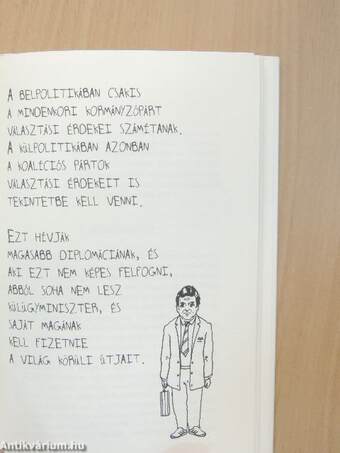 A BELPOLITIKÁBAN CSAKIS
A MINDENKORI KORMÁNYZÓPÁRT
VÁLASZTÁSI ÉRDEKEI SZÁMÍTANAK.
A KÜLPOLITIKÁBAN AZONBAN
A KOALÍCIÓS PÁRTOK
VÁLASZTÁSI ÉRDEKEIT IS
TEKINTETBE KELL VENNI.
EZT HÍVJÁK
MAGASABB DIPLOMÁCIÁNAK, ÉS
AKI EZT NEM KÉPES FELFOGNI,
ABBÓL SOHA NEM LESZ
KÜLÜGYMINISZTER, ÉS
SAJÁT MAGÁNAK
KELL FIZETNIE
A VILÁG KÖRÜLI ÚTJAIT.
Antikvárium.hu